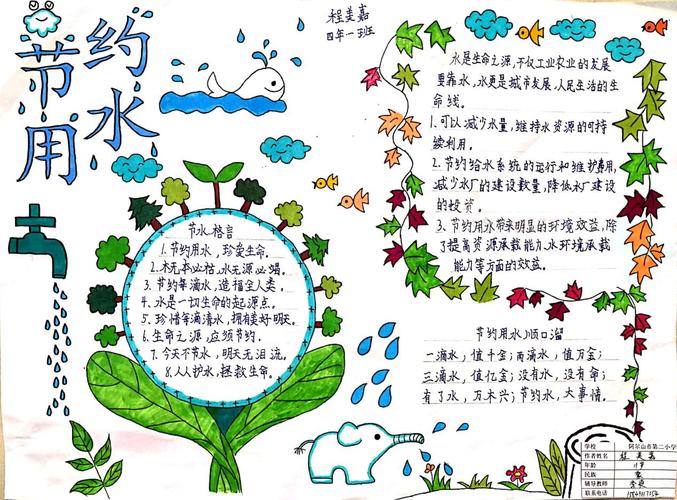 节约用水
程美嘉
四年一班
节水格言
1.节约用水，珍爱生命。
2.木无本必枯，水无源必竭。
3.节约每滴水，造福全人类。
4.水是一切生命的起源点。
5.珍惜每滴清水，拥有美好明天。
6.生命之源，应须节约。
7.今天不节水，明天无泪流。
8.人人护水，拯救生命。
水是生命之源，不仅工业农业的发展
要靠水，水更是城市发展、人民生活的生
命线。
1.可以减少水量，维持水资源的可持
续利用。
2.节约给水系统的运行和维护费用，
减少水厂的建设数量，降低水厂建设
的投资。
3、节约用水带来明显的环境效益，除
了提高资源承载能力、水环境承载
能力等方面的效益。
节约用水顺口溜
一滴水，值千金；两滴水，值万金；
三滴水，值亿金；没有水，没有命；
有了水，万木兴；节约水，大事情。
学校 阿尔山市第二小学
作者姓名 程美嘉
年龄 11岁
民族
辅导教师
联系电话